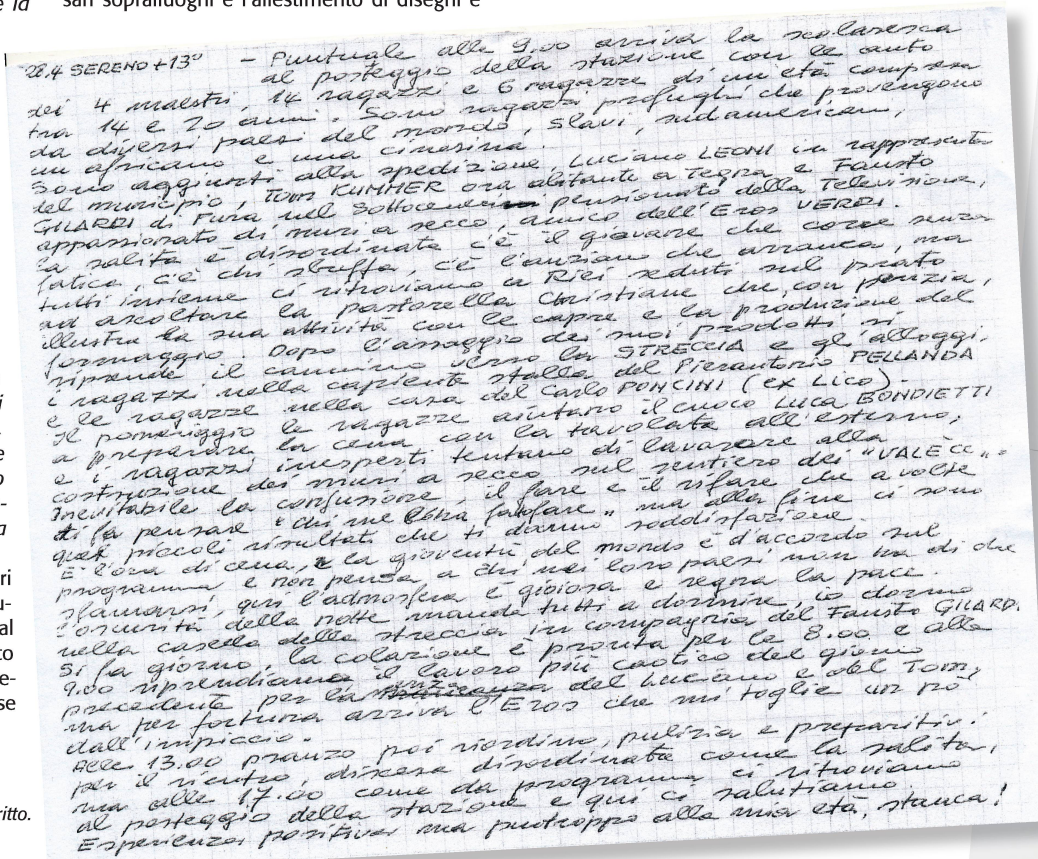 e la
san sopralluoghi e l'allestimento di disegni e
28.4 SERENO + 13° - Puntuale alle 9.00 arriva la scolaresca
al posteggio della stazione con le auto
dei 4 maestri, 14 ragazzi e 6 ragazze di un'età compresa
tra 14 e 20 anni. Sono ragazzi profughi che provengono
da diversi paesi del mondo, slavi, sudamericani,
un africano e una cinesina.
Sono aggiunti alla spedizione Luciano LEONI in rappresentan
del municipio, Tom KUMMER ora abitante a Tegna e Fausto
GILARDI di Pura nel Sottoceneri pensionato della Televisione,
appassionato di muri a secco, amico dell'Eros VERDI.
La salita è disordinata c'è il giovane che corre senza
fatica, c'è chi sbuffa, c'è l'anziano che arranca, ma
tutti insieme ci ritroviamo a Riei seduti sul prato
ad ascoltare la pastorella Christiane che, con perizia,
illustra la sua attività con le capre e la produzione del
formaggio. Dopo l'assaggio dei suoi prodotti si
riprende il cammino verso la STRECCIA e gli alloggi.
i ragazzi nella capiente stalla del Pierantonio PELLANDA
e le ragazze nella casa del Carlo PONCINI (ex Lico).
Il pomeriggio le ragazze aiutano il cuoco Luca BONDIETTI
a preparare la cena con la tavolata all'esterno,
e i ragazzi inesperti tentano di lavorare alla
costruzione dei muri a secco sul sentiero dei "VALECC".
Inevitabile la confusione, il fare e il rifare che a volte
ti fa pensare "chi me l'ha fa fare" ma alla fine ci sono
quei piccoli risultati che ti danno soddisfazione.
E l'ora di cena, e la gioventù del mondo è d'accordo sul
programma e non pensa a chi nei loro paesi non ha di che
sfamarsi, qui l'admosfera è gioiosa e regna la pace.
L'oscurità della notte manda tutti a dormire, io dormo
nella casela della streccia in compagnia del Fausto GILARDI.
Si fa giorno, la colazione è pronta per le 8.00 e alle
9.00 riprendiamo il lavoro più caotico del giorno
precedente per la del Luciano e del Tom,
ma per fortuna arriva l'Eros che mi toglie un pò
dall'impiccio.
Alle 13.00 pranzo poi riordino, pulizia e preparativi
per il rientro, discesa disordinata come la salita,
ma alle 17.00 come da programma ci ritroviamo
al posteggio della stazione e qui ci salutiamo.
Esperienza positiva ma purtroppo alla mia età, stanca!
i
e
o
a
ri
u-
al
to
e-
se
ritto.